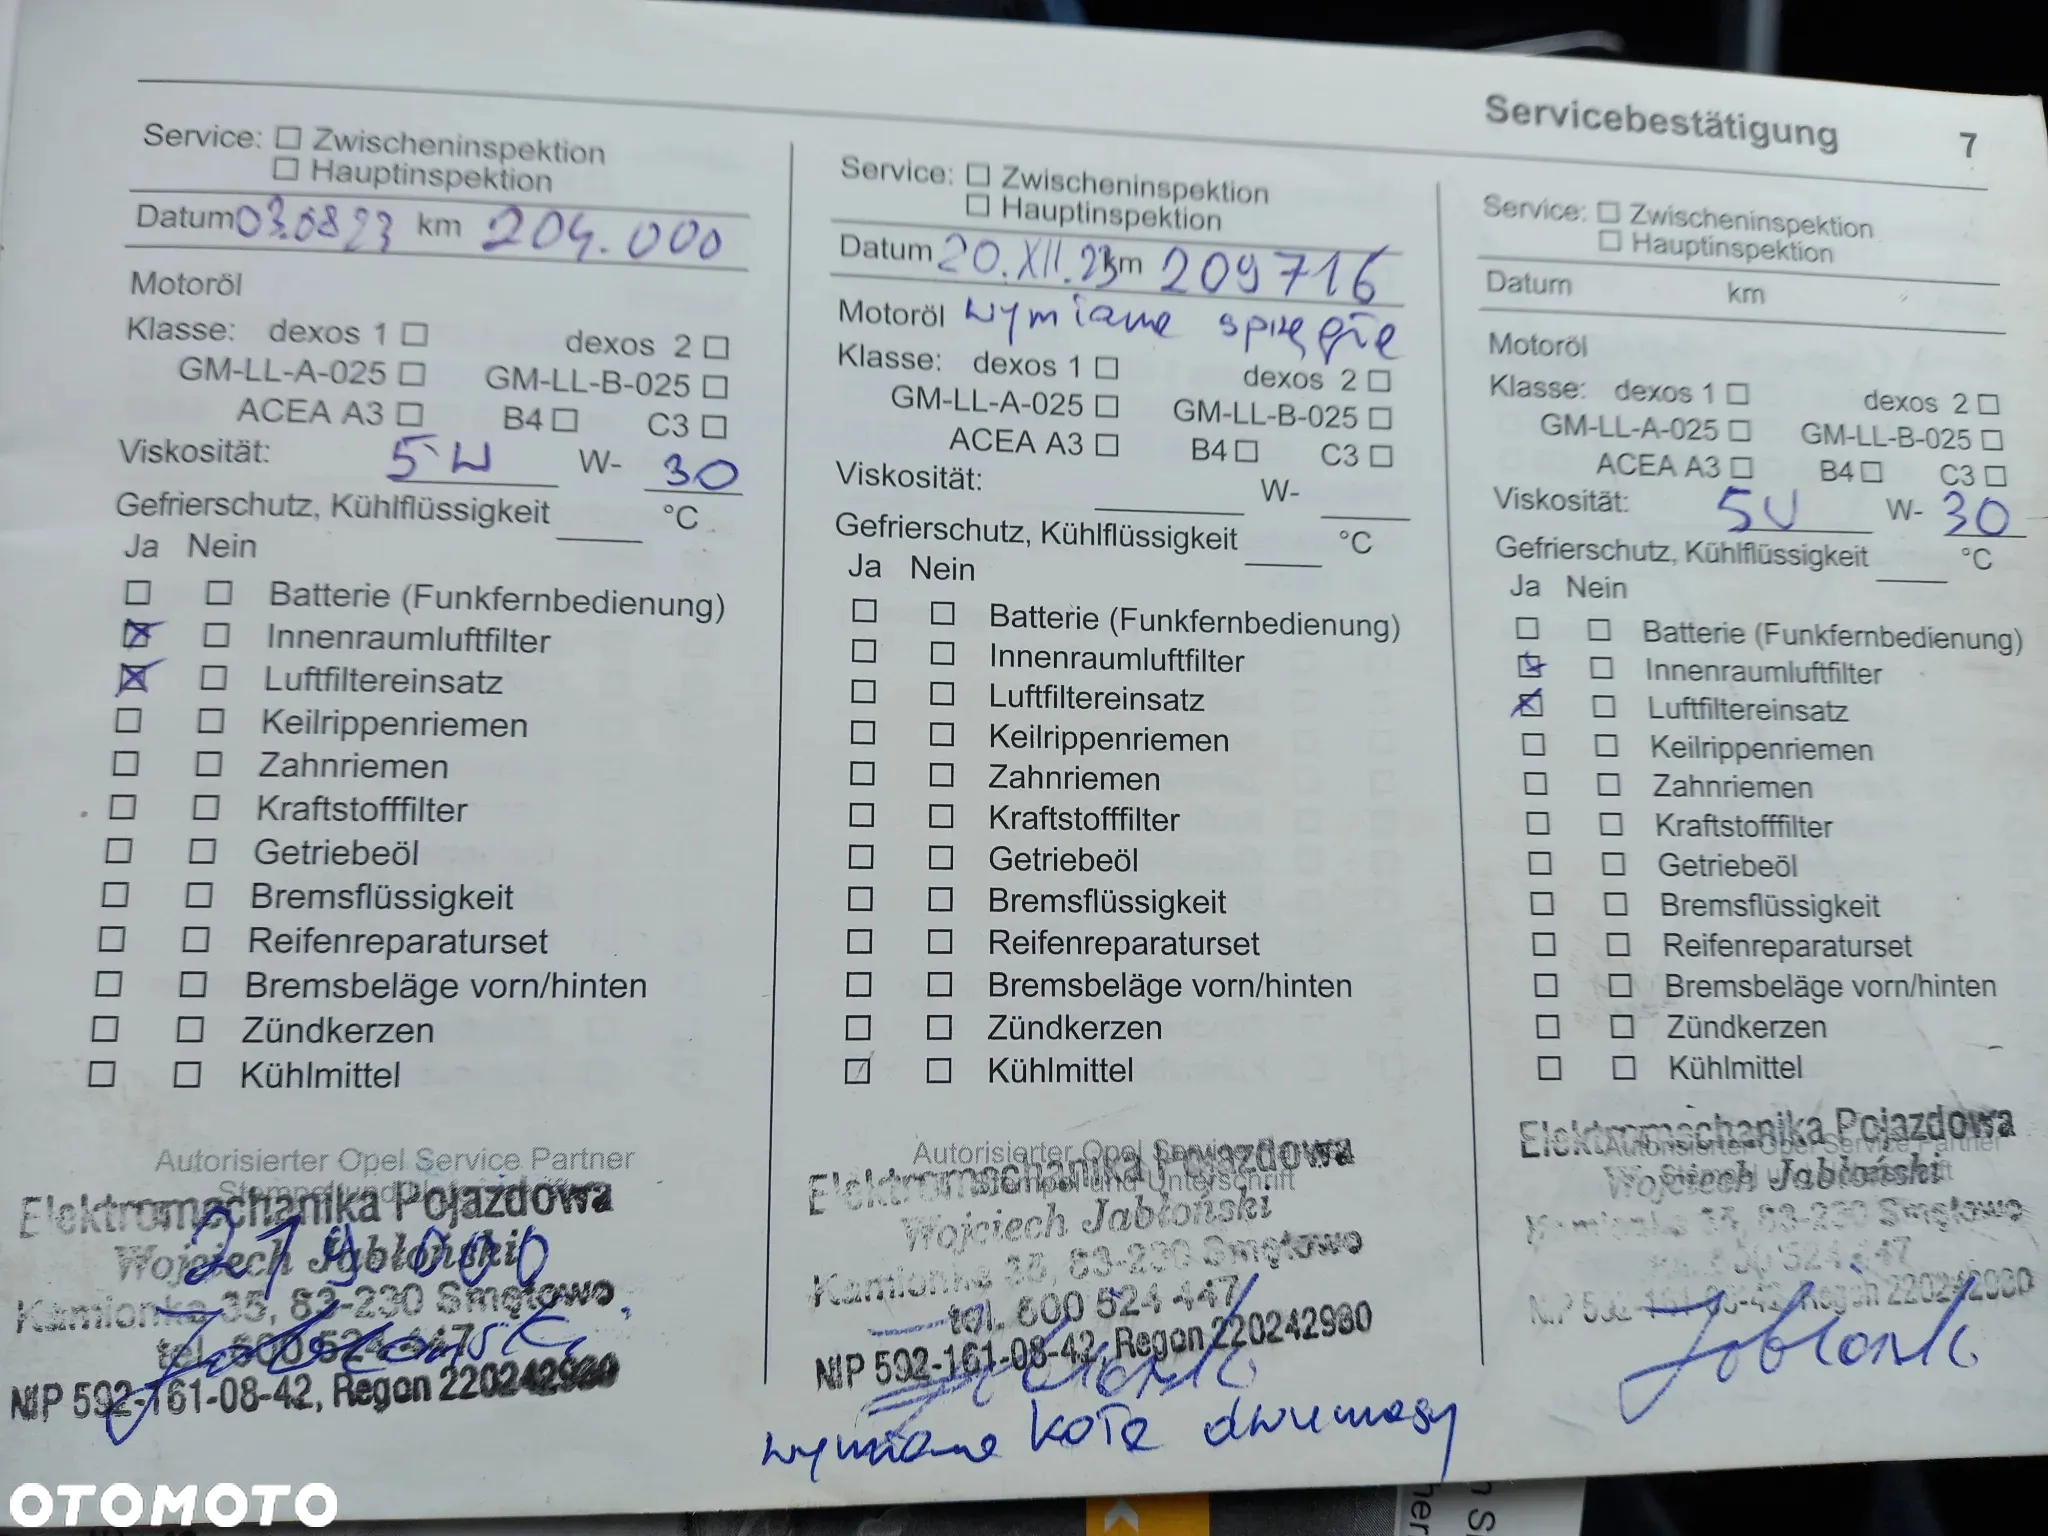 Servicebestätigung 7
Service: Zwischeninspektion
Hauptinspektion
Datum 03.08 23 km 204.000
Motoröl
Klasse: dexos 1 dexos 2
GM-LL-A-025 GM-LL-B-025
ACEA A3 B4 C3
Viskosität: 5W W- 30
Gefrierschutz, Kühlflüssigkeit °C
Ja Nein
Batterie (Funkfernbedienung)
Innenraumluftfilter
Luftfiltereinsatz
Keilrippenriemen
Zahnriemen
Kraftstofffilter
Getriebeöl
Bremsflüssigkeit
Reifenreparaturset
Bremsbeläge vorn/hinten
Zündkerzen
Kühlmittel
Autorisierter Opel Service Partner
Elektromechanika Pojazdowa
219 000
Wojciech Jabłoński
Kamionka 35, 83-230 Smętowo
tel. 600 524 447
NIP 592-161-08-42, Regon 220242980
Service: Zwischeninspektion
Hauptinspektion
Datum 20.XII.23 km 209716
Motoröl wymiana sprzęgła
Klasse: dexos 1 dexos 2
GM-LL-A-025 GM-LL-B-025
ACEA A3 B4 C3
Viskosität: W-
Gefrierschutz, Kühlflüssigkeit °C
Ja Nein
Batterie (Funkfernbedienung)
Innenraumluftfilter
Luftfiltereinsatz
Keilrippenriemen
Zahnriemen
Kraftstofffilter
Getriebeöl
Bremsflüssigkeit
Reifenreparaturset
Bremsbeläge vorn/hinten
Zündkerzen
Kühlmittel
Autorisierter Opel Service
Elektromechanika Pojazdowa
Stempel und Unterschrift
Wojciech Jabłoński
Kamionka 35, 83-230 Smętowo
tel. 600 524 447
NIP 592-161-08-42, Regon 220242980
wymiana koła dwumasy
Service: Zwischeninspektion
Hauptinspektion
Datum km
Motoröl
Klasse: dexos 1 dexos 2
GM-LL-A-025 GM-LL-B-025
ACEA A3 B4 C3
Viskosität: 5U W- 30
Gefrierschutz, Kühlflüssigkeit °C
Ja Nein
Batterie (Funkfernbedienung)
Innenraumluftfilter
Luftfiltereinsatz
Keilrippenriemen
Zahnriemen
Kraftstofffilter
Getriebeöl
Bremsflüssigkeit
Reifenreparaturset
Bremsbeläge vorn/hinten
Zündkerzen
Kühlmittel
Elektromechanika Pojazdowa
Autorisierter Opel Service Partner
Wojciech Jabłoński
Kamionka 35, 83-230 Smętowo
524 447
NIP 592-161-08-42, Regon 220242980
OTOMOTO